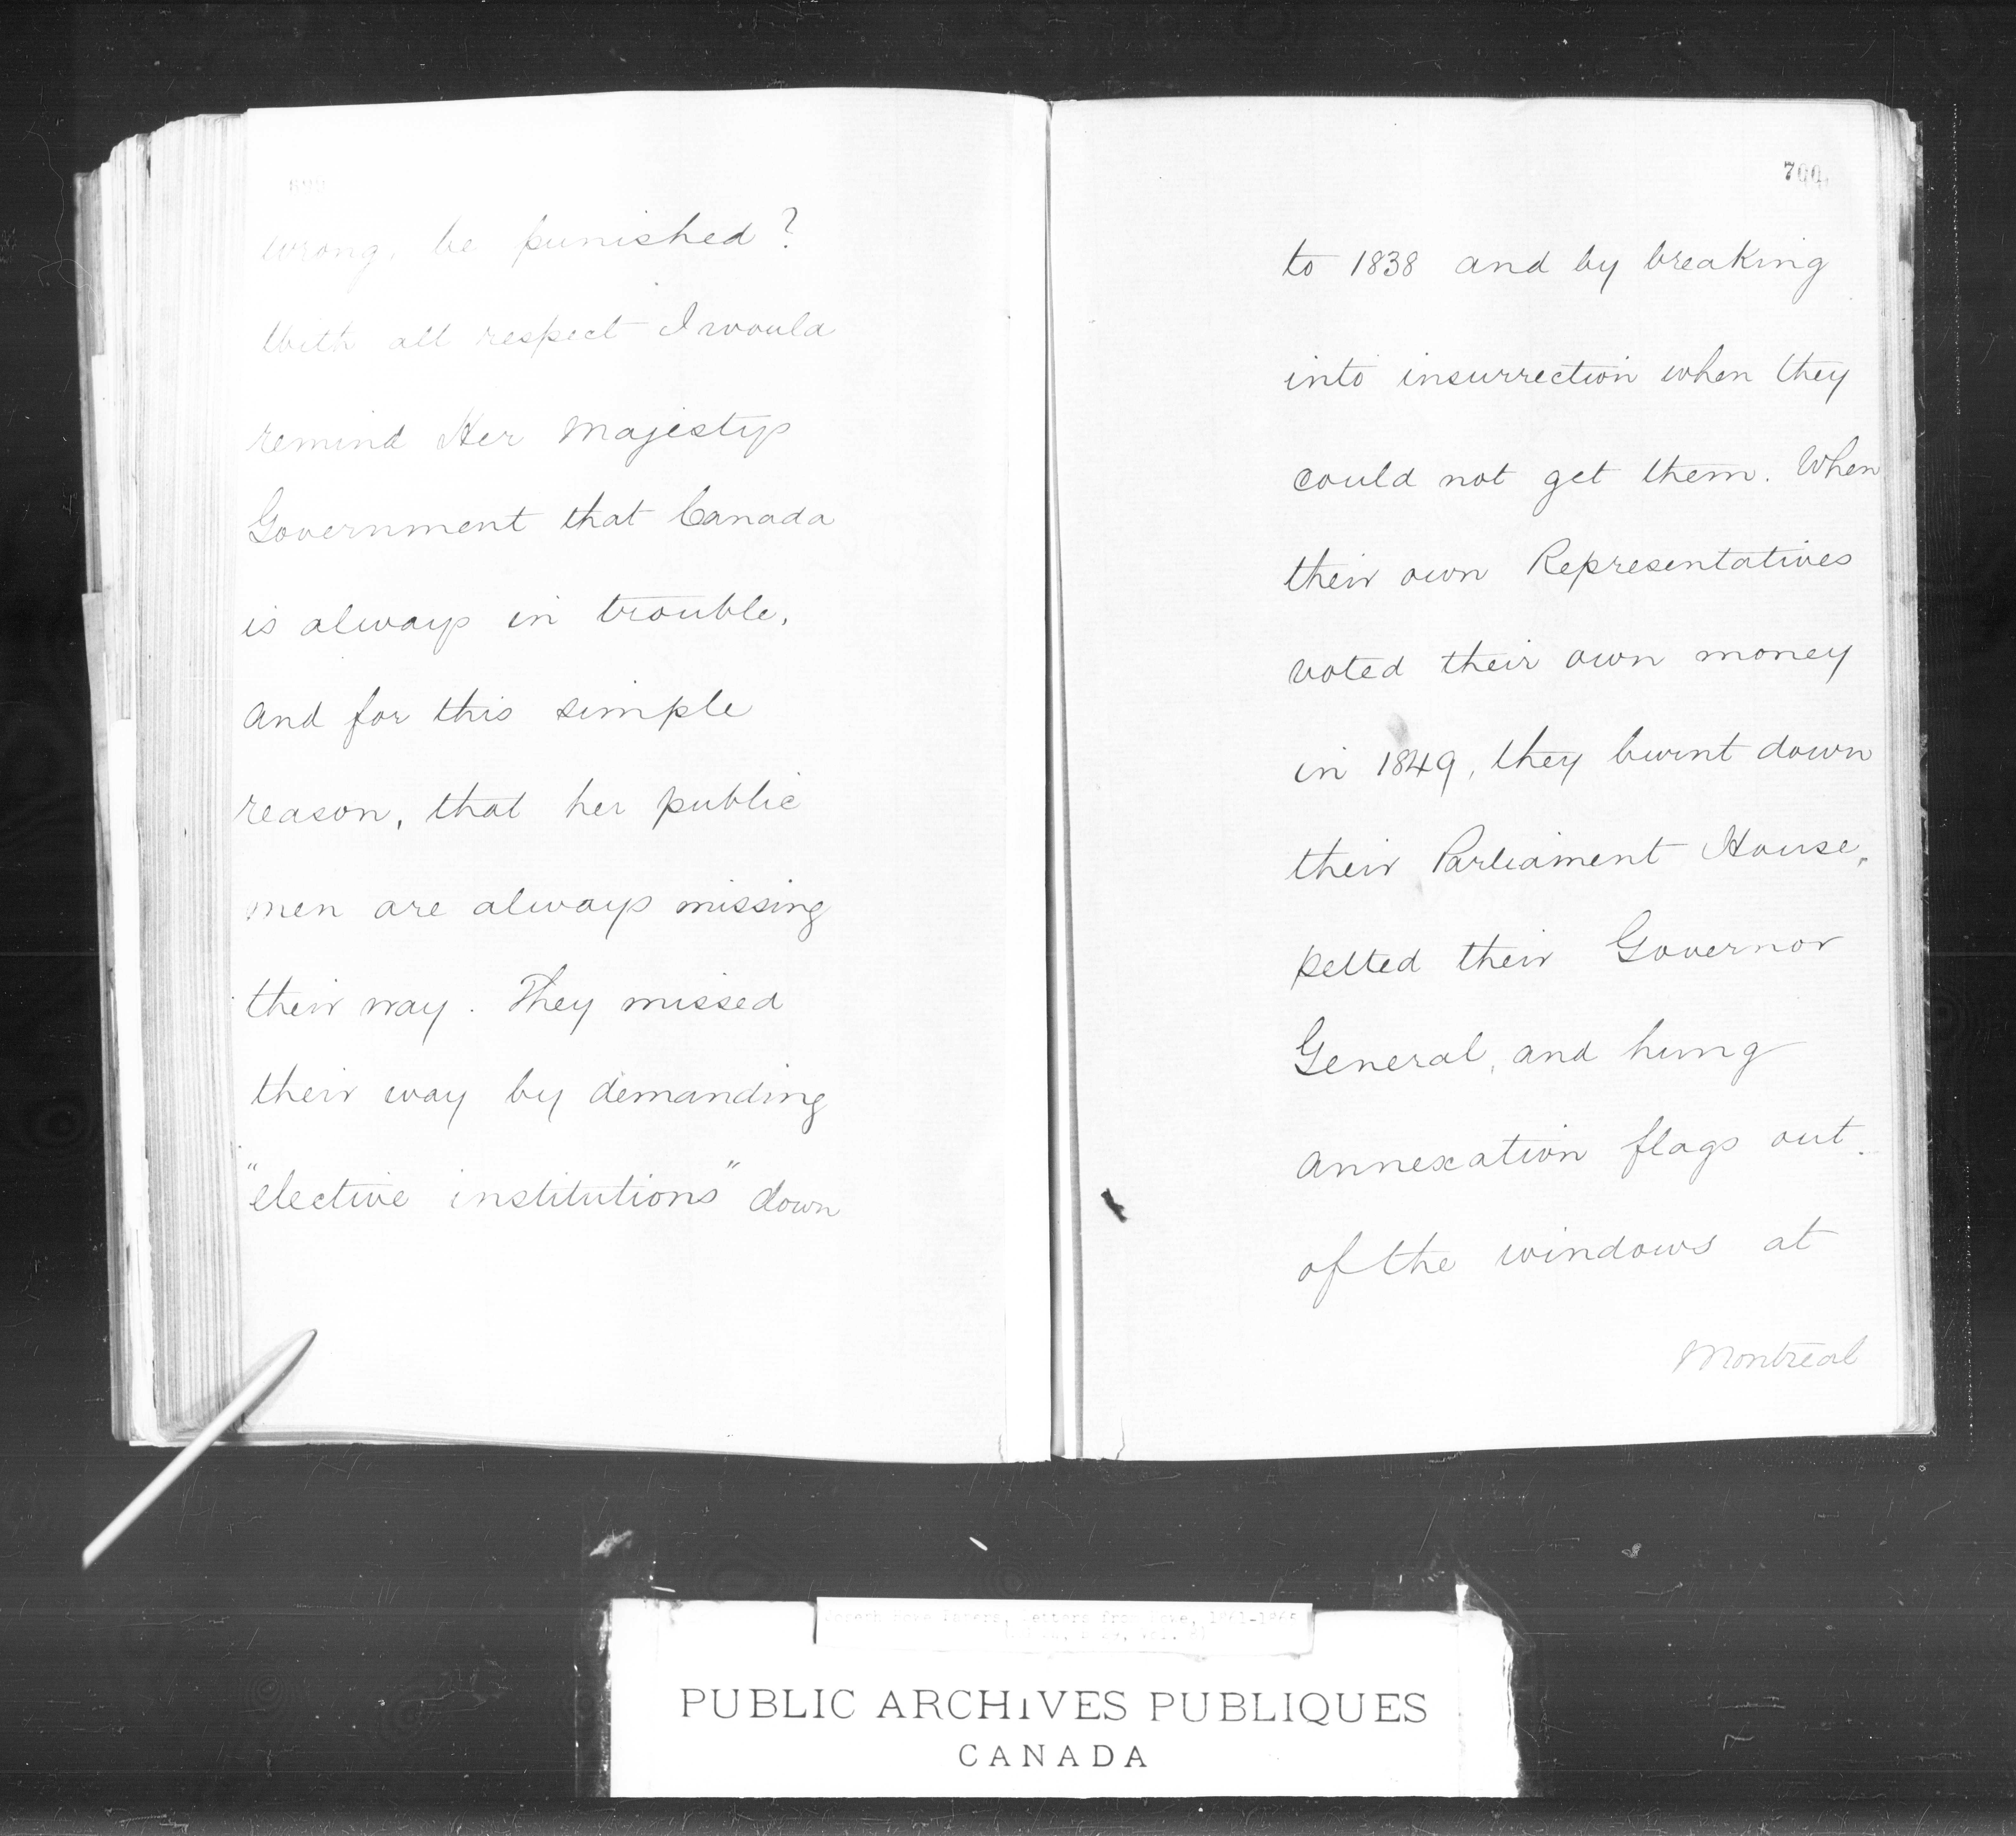 699
wrong, be punished?
With all respect I would
remind Her Majestys
Government that Canada
is always in trouble,
and for this simple
reason, that her public
men are always missing
their way. They missed
their way by demanding
"elective institutions" down
700
to 1838 and by breaking
into insurrection when they
could not get them. When
their own Representatives
voted their own money
in 1849, they burnt down
their Parliament House,
pelted their Governor
General, and hung
annexation flags out
of the windows at
Montreal
Joseph Howe Papers, Letters from Howe, 1861-1865
PUBLIC ARCHIVES PUBLIQUES
CANADA